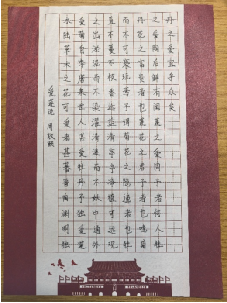 爱莲说 周敦颐
水陆草木之花可爱者甚蕃晋陶渊明独
爱菊自李唐来世人甚爱牡丹予独爱莲
之出淤泥而不染濯清涟而不妖中通外
直不蔓不枝香远益清亭亭净植可远观
而不可亵玩焉予谓菊花之隐逸者也牡
丹花之富贵者也莲花之君子者也噫菊
之爱陶后鲜有闻莲之爱同予者何人牡
丹之爱宜乎众矣